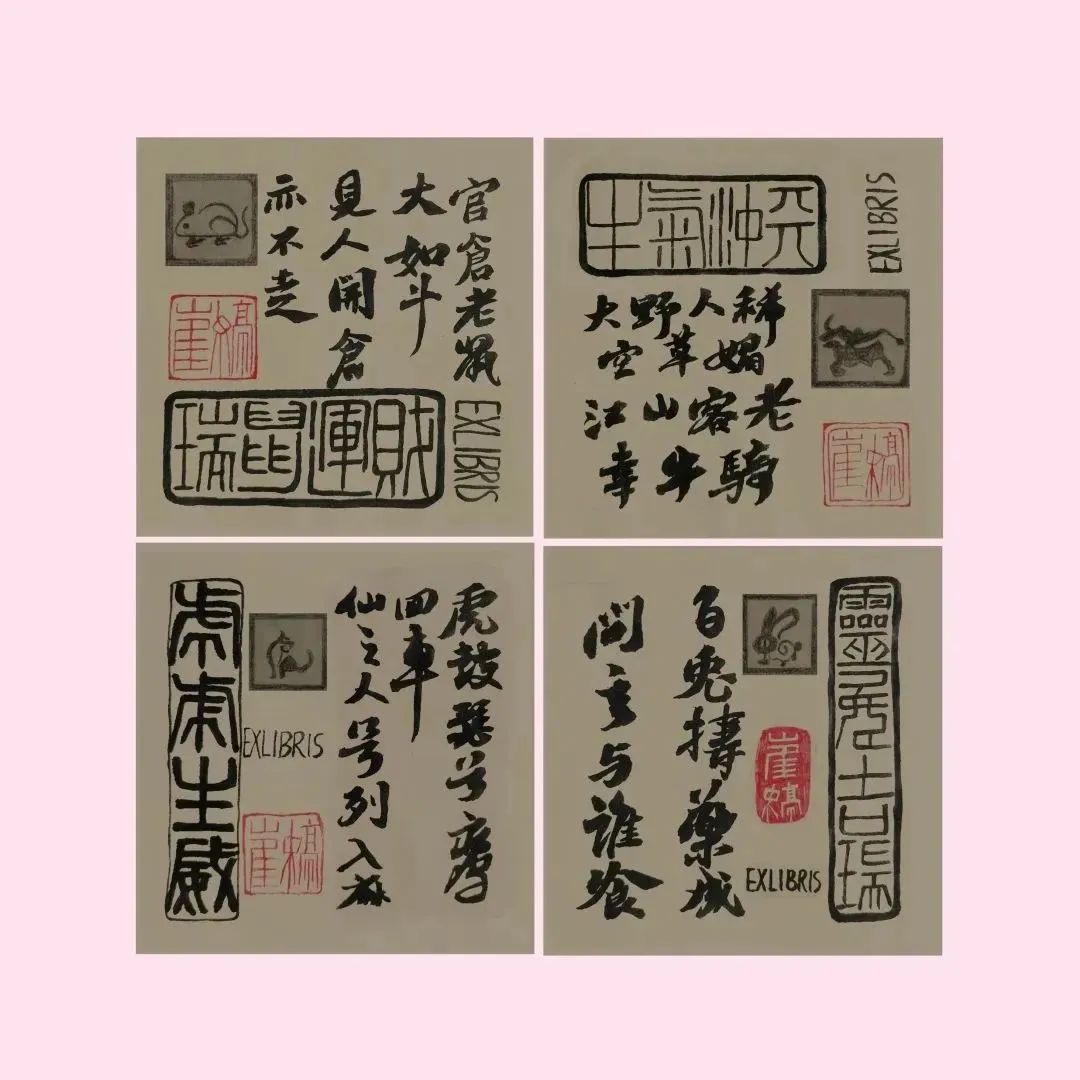 官倉老鼠
大如斗
見人開倉
亦不走
崔
瑞鼠運財
EXLIBRIS
牛氣沖天
EXLIBRIS
大野人稀
空草媚
江山客老
幸牛騎
崔
虎鼓瑟兮鸞
回車
仙之人兮列入麻
EXLIBRIS
虎虎生威
崔
靈兔吉瑞
白兔擣藥成
問言与誰餐
崔
EXLIBRIS